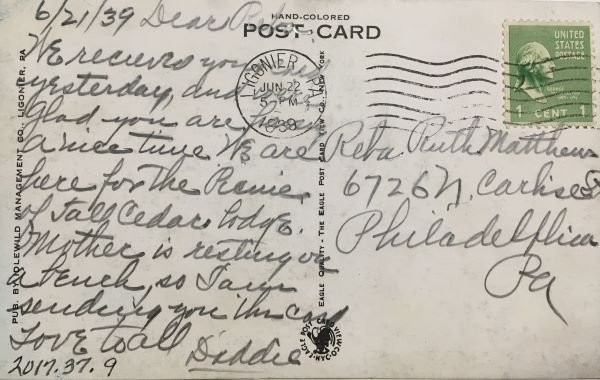 6/21/39 Dear Reba
HAND-COLORED
POST CARD
We received your card
yesterday, and
Glad you are having
a nice time We are
here for the Picnic
of Tall Cedars Lodge.
Mother is resting on
a bench, so I am
sending you this card
Love to all
Daddie
2017.37.9
PUB. BY IDLEWILD MANAGEMENT CO., LIGONIER, PA
EAGLE QUALITY - THE EAGLE POST CARD VIEW CO. NEW YORK
EAGLE POST CARD VIEW CO. N.Y.
LIGONIER, PA.
JUN 22
5 PM
1939
UNITED
STATES
POSTAGE
1 CENT 1
Reba Ruth Matthews
6726 N. Carlisle St
Philadelphia
Pa